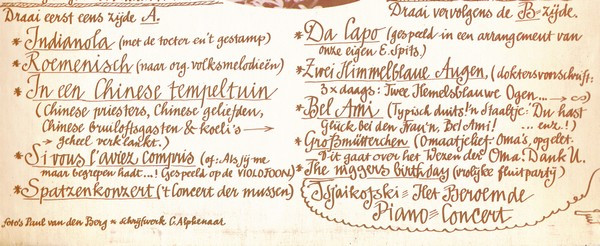 Draai eerst eens zijde A.
* Indianola (met de toeter en't gestamp)
* Roemenisch (naar org. volksmelodieën)
* In een Chinese tempeltuin
(Chinese priesters, Chinese geliefden,
Chinese bruiloftsgasten & koeli's →
→ geheel verklankt.)
* Si vous l'aviez compris (of: Als jij me
maar begrepen hadt...! Gespeeld op de VIOLOFOON)
* Spatzenkonzert ('t Concert der mussen)
foto's Paul van den Berg = schrijfwerk C. Alphenaar
Draai vervolgens de B=zijde.
* Da Capo (gespeeld in een arrangement van
onze eigen E. Spits)
* Zwei Himmelblaue Augen, (doktersvoorschrift:
3 x daags: Twee Hemelsblauwe Ogen... → ∞)
* Bel Ami (Typisch duits!'n Staaltje: 'Du hast
Glück bei den Frau'n, Bel Ami! ... enz.!)
* Großmütterchen (Omaatjelief-Oma's, opgelet.
Dit gaat over het Wezen der Oma. Dank U.
* The niggers birthday (vrolijke fluitparty)
Tsjaikofski = Het Beroemde
Piano = Concert